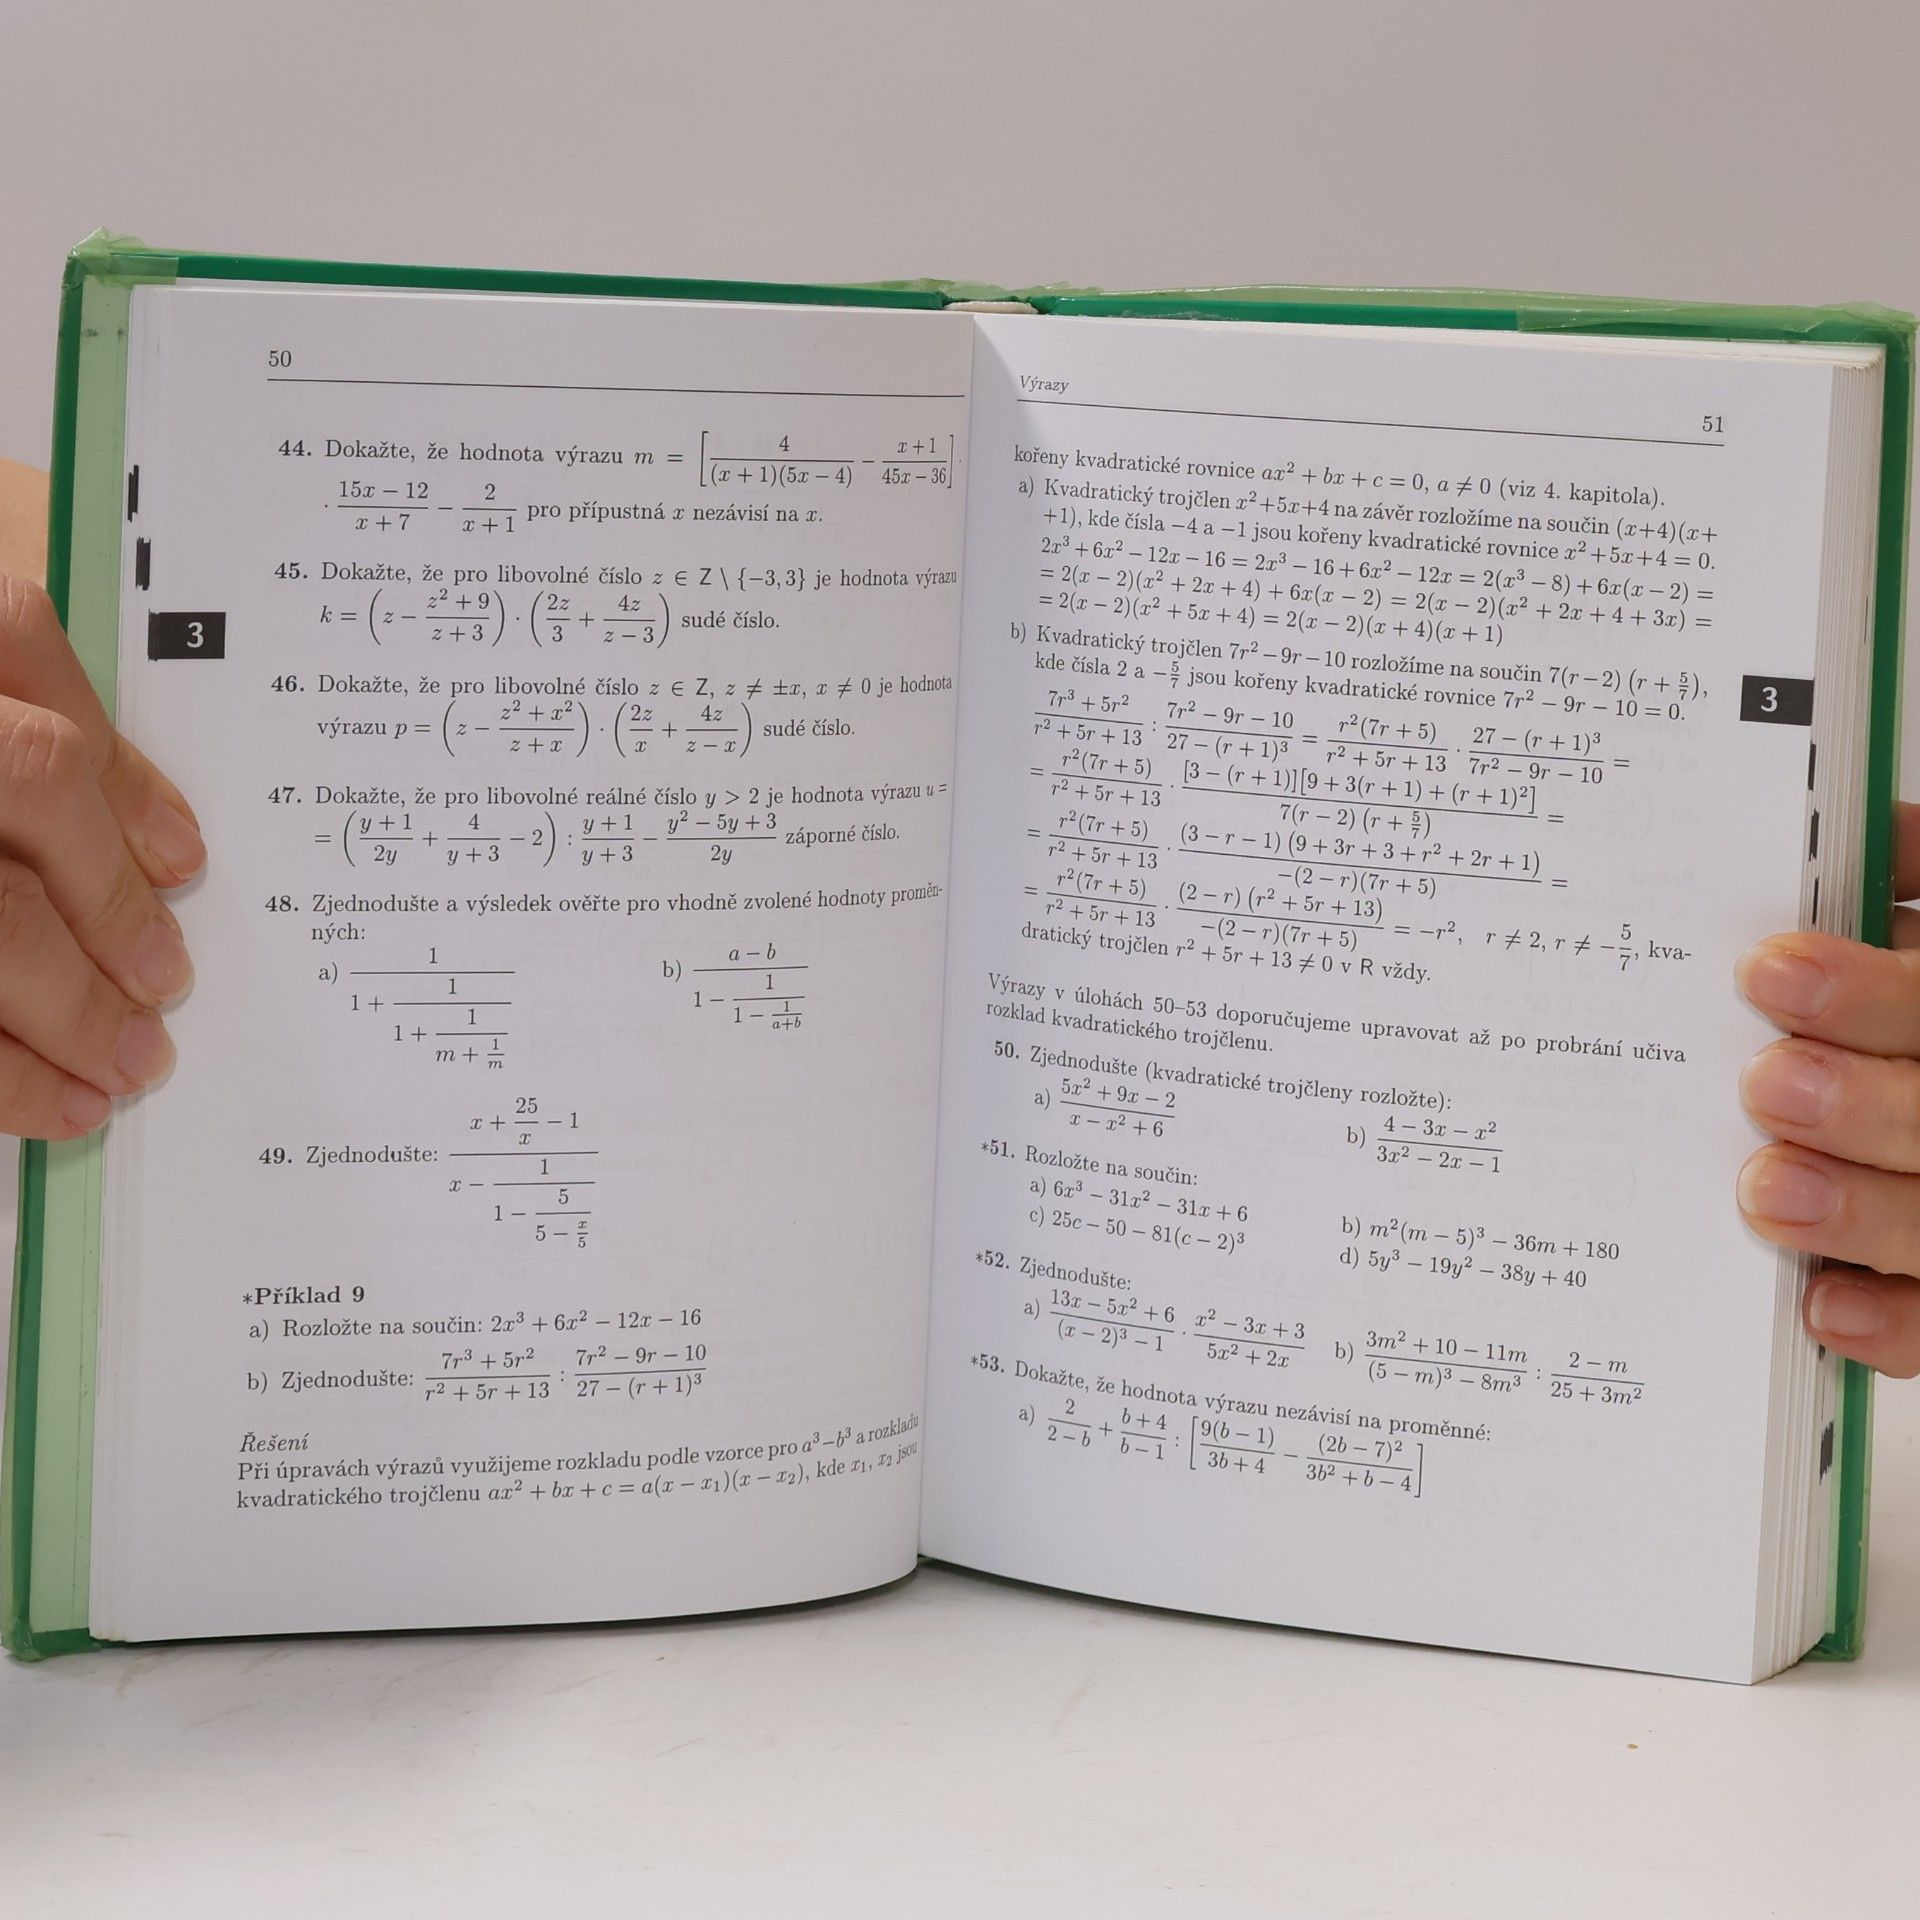 50
44. Dokažte, že hodnota výrazu m = [4/((x + 1)(5x − 4)) − (x + 1)/(45x − 36)] ·
· (15x − 12)/(x + 7) − 2/(x + 1) pro přípustná x nezávisí na x.
45. Dokažte, že pro libovolné číslo z ∈ Z \ {−3, 3} je hodnota výrazu
k = (z − (z² + 9)/(z + 3)) · (2z/3 + 4z/(z − 3)) sudé číslo.
3
46. Dokažte, že pro libovolné číslo z ∈ Z, z ≠ ±x, x ≠ 0 je hodnota
výrazu p = (z − (z² + x²)/(z + x)) · (2z/x + 4z/(z − x)) sudé číslo.
47. Dokažte, že pro libovolné reálné číslo y > 2 je hodnota výrazu u =
= ((y + 1)/2y + 4/(y + 3) − 2) : (y + 1)/(y + 3) − (y² − 5y + 3)/2y záporné číslo.
48. Zjednodušte a výsledek ověřte pro vhodně zvolené hodnoty proměn-
ných:
a) 1/(1 + 1/(1 + 1/(m + 1/m))) b) (a − b)/(1 − 1/(1 − 1/(a+b)))
49. Zjednodušte: (x + 25/x − 1)/(x − 1/(1 − 5/(5 − x/5)))
*Příklad 9
a) Rozložte na součin: 2x³ + 6x² − 12x − 16
b) Zjednodušte: (7r³ + 5r²)/(r² + 5r + 13) : (7r² − 9r − 10)/(27 − (r + 1)³)
Řešení
Při úpravách výrazů využijeme rozkladu podle vzorce pro a³−b³ a rozkladu
kvadratického trojčlenu ax² + bx + c = a(x − x₁)(x − x₂), kde x₁, x₂ jsou
Výrazy
51
kořeny kvadratické rovnice ax² + bx + c = 0, a ≠ 0 (viz 4. kapitola).
a) Kvadratický trojčlen x²+5x+4 na závěr rozložíme na součin (x+4)(x+
+1), kde čísla −4 a −1 jsou kořeny kvadratické rovnice x²+5x+4 = 0.
2x³ + 6x² − 12x − 16 = 2x³ − 16 + 6x² − 12x = 2(x³ − 8) + 6x(x − 2) =
= 2(x − 2)(x² + 2x + 4) + 6x(x − 2) = 2(x − 2)(x² + 2x + 4 + 3x) =
= 2(x − 2)(x² + 5x + 4) = 2(x − 2)(x + 4)(x + 1)
b) Kvadratický trojčlen 7r² − 9r − 10 rozložíme na součin 7(r − 2) (r + 5/7),
kde čísla 2 a −5/7 jsou kořeny kvadratické rovnice 7r² − 9r − 10 = 0.
3
(7r³ + 5r²)/(r² + 5r + 13) : (7r² − 9r − 10)/(27 − (r + 1)³) = r²(7r + 5)/(r² + 5r + 13) · (27 − (r + 1)³)/(7r² − 9r − 10) =
= r²(7r + 5)/(r² + 5r + 13) · [3 − (r + 1)][9 + 3(r + 1) + (r + 1)²]/(7(r − 2) (r + 5/7)) =
= r²(7r + 5)/(r² + 5r + 13) · (3 − r − 1) (9 + 3r + 3 + r² + 2r + 1)/(−(2 − r)(7r + 5)) =
= r²(7r + 5)/(r² + 5r + 13) · (2 − r) (r² + 5r + 13)/(−(2 − r)(7r + 5)) = −r², r ≠ 2, r ≠ −5/7, kva-
dratický trojčlen r² + 5r + 13 ≠ 0 v R vždy.
Výrazy v úlohách 50–53 doporučujeme upravovat až po probrání učiva
rozklad kvadratického trojčlenu.
50. Zjednodušte (kvadratické trojčleny rozložte):
a) (5x² + 9x − 2)/(x − x² + 6) b) (4 − 3x − x²)/(3x² − 2x − 1)
*51. Rozložte na součin:
a) 6x³ − 31x² − 31x + 6 b) m²(m − 5)³ − 36m + 180
c) 25c − 50 − 81(c − 2)³ d) 5y³ − 19y² − 38y + 40
*52. Zjednodušte:
a) (13x − 5x² + 6)/((x − 2)³ − 1) · (x² − 3x + 3)/(5x² + 2x) b) (3m² + 10 − 11m)/((5 − m)³ − 8m³) : (2 − m)/(25 + 3m²)
*53. Dokažte, že hodnota výrazu nezávisí na proměnné:
a) 2/(2 − b) + (b + 4)/(b − 1) : [9(b − 1)/(3b + 4) − (2b − 7)²/(3b² + b − 4)]